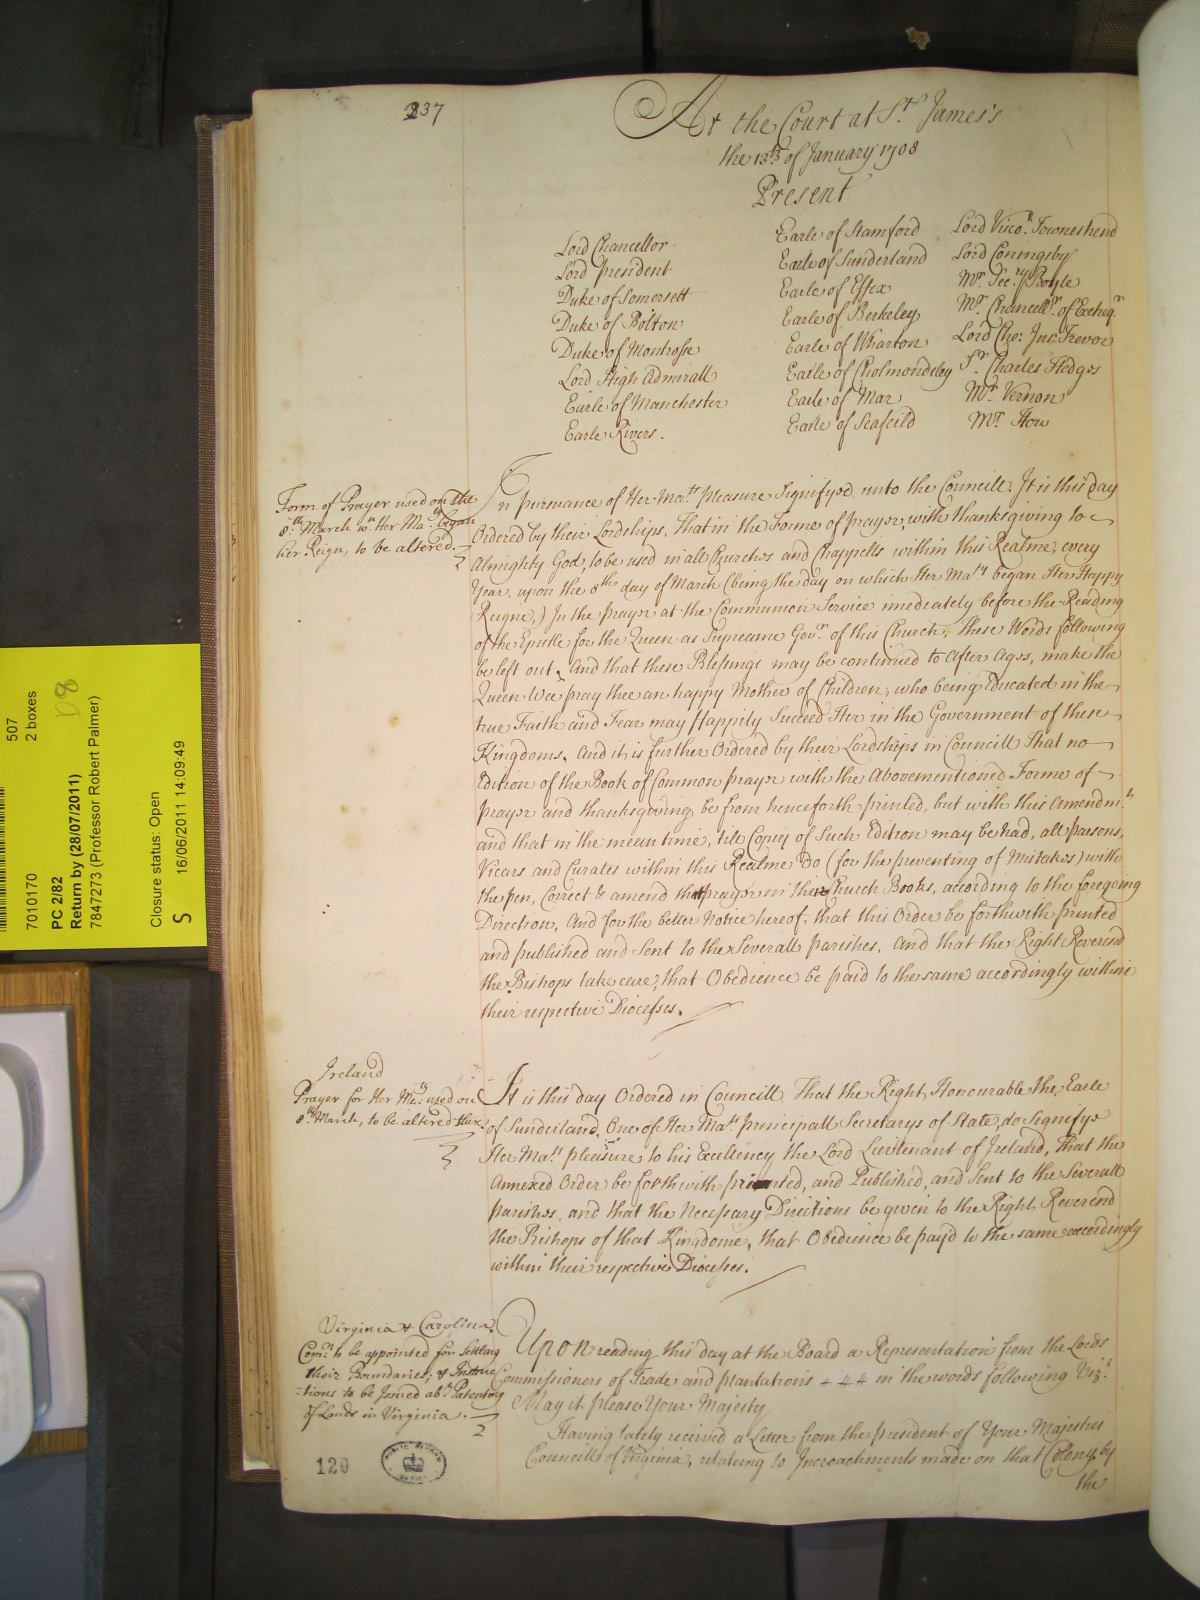 237
At the Court at St. James's
the 13th of January 1708
Present
Lord Chancellor
Lord president
Duke of Somersett
Duke of Bolton
Duke of Montrosse
Lord High Admirall
Earle of Manchester
Earle Rivers.
Earle of Stamford
Earle of Sunderland
Earle of Essex
Earle of Berkeley
Earle of Wharton
Earle of Cholmondeley
Earle of Mar
Earle of Seafeild
Lord Visco.t Towneshend
Lord Coningsby
Mr. Sec.ry Boyle
Mr. Chancell.r of Excheq.r
Lord Che: Jus: Trevor
Sr. Charles Hedges
Mr. Vernon
Mr. How
Form of Prayer used on the
8.th March wn Her Ma.ty began
her Reign, to be altered.
In pursuance of Her Ma.ts pleasure Signifyed unto the Councill. It is this day
Ordered by their Lordships, That in the Forme of prayer, with thanksgiving to
Almighty God, to be used in all Churches and Chappells within this Realme, every
Year, upon the 8th day of March (being the day on which Her Ma.ty began Her Happy
Reigne,) In the prayer at the Communion Service imediately before the Reading
of the Epistle for the Queen as Supreame Gov.r of this Church, these Words following
be left out, And that these Blessings may be continued to After Ages, make the
Queen Wee pray thee an happy Mother of Children, who being Educated in the
true Faith and Fear may Happily Succeed Her in the Government of these
Kingdoms. And it is further Ordered by their Lordships in Councill That no
Edition of the Book of Common prayer with the Abovementioned Forme of
prayer and thanksgiving be from henceforth printed, but with this Amendm.t
and that in the mean time, till Copies of Such Edition may be had, all parsons,
Vicars and Curates within this Realme do (for the preventing of Mistakes) with
the pen, Correct & amend that prayer in their Church Books, according to the foregoing
Direction, And for the better Notice hereof, that this Order be forthwith printed
and published and Sent to the Severall parishes. And that the Right Reverend
the Bishops take care, that Obedience be paid to the same accordingly within
their respective Diocesses.
Ireland
Prayer for Her Ma.ty used on
8th March, to be altered there.
It is this day Ordered in Councill That the Right Honourable the Earle
of Sunderland, One of Her Ma.ts principall Secretarys of State, do Signifye
Her Ma.ts pleasure to his Excellency the Lord Lieutenant of Ireland, That the
Annexed Order be forthwith printed, and Published, and Sent to the Severall
parishes, and that the Necessary Directions be given to the Right Reverend
the Bishops of that Kingdome, that Obedience be pay'd to the same accordingly
within their respective Diocesses.
Virginia & Carolina.
Com.rs to be appointed for Settling
their Boundaries; & Instruc
-tions to be Issued ab.t Patenting
of Lands in Virginia.
Upon reading this day at the Board a Representation from the Lords
Commissioners of Trade and plantations in the words following Viz.t
May it please Your Majesty
Having lately received a Letter from the president of Your Majesties
Councill of Virginia, relateing to Incroachments made on that Colony by
the
120
507
2 boxes
D8
7010170
PC 2/82
Return by (28/07/2011)
7847273 (Professor Robert Palmer)
Closure status: Open
S
16/06/2011 14:09:49